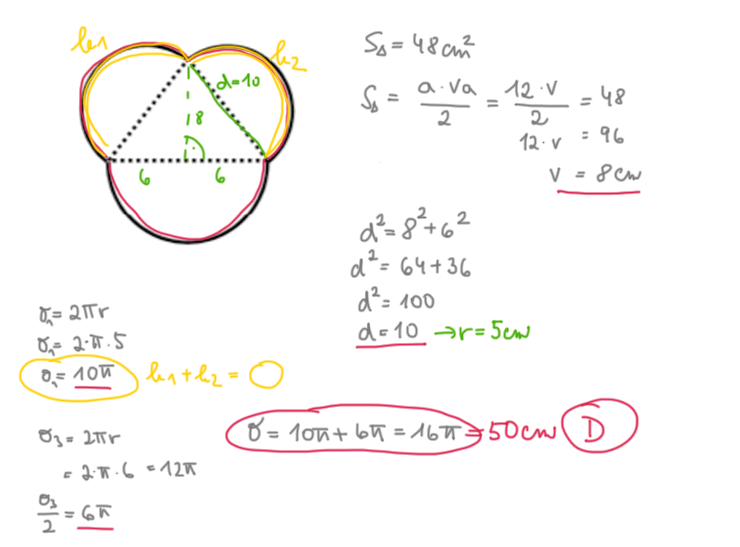 k1
k2
d=10
8
6
6
S△ = 48cm²
S△ = a·va/2 = 12·v/2 = 48
12·v = 96
v = 8cm
d² = 8² + 6²
d² = 64 + 36
d² = 100
d = 10 → r = 5cm
σ₁ = 2πr
σ₁ = 2·π·5
σ₁ = 10π k1 + k2 = ○
σ3 = 2πr
= 2·π·6 = 12π
σ3/2 = 6π
σ = 10π + 6π = 16π = 50cm D